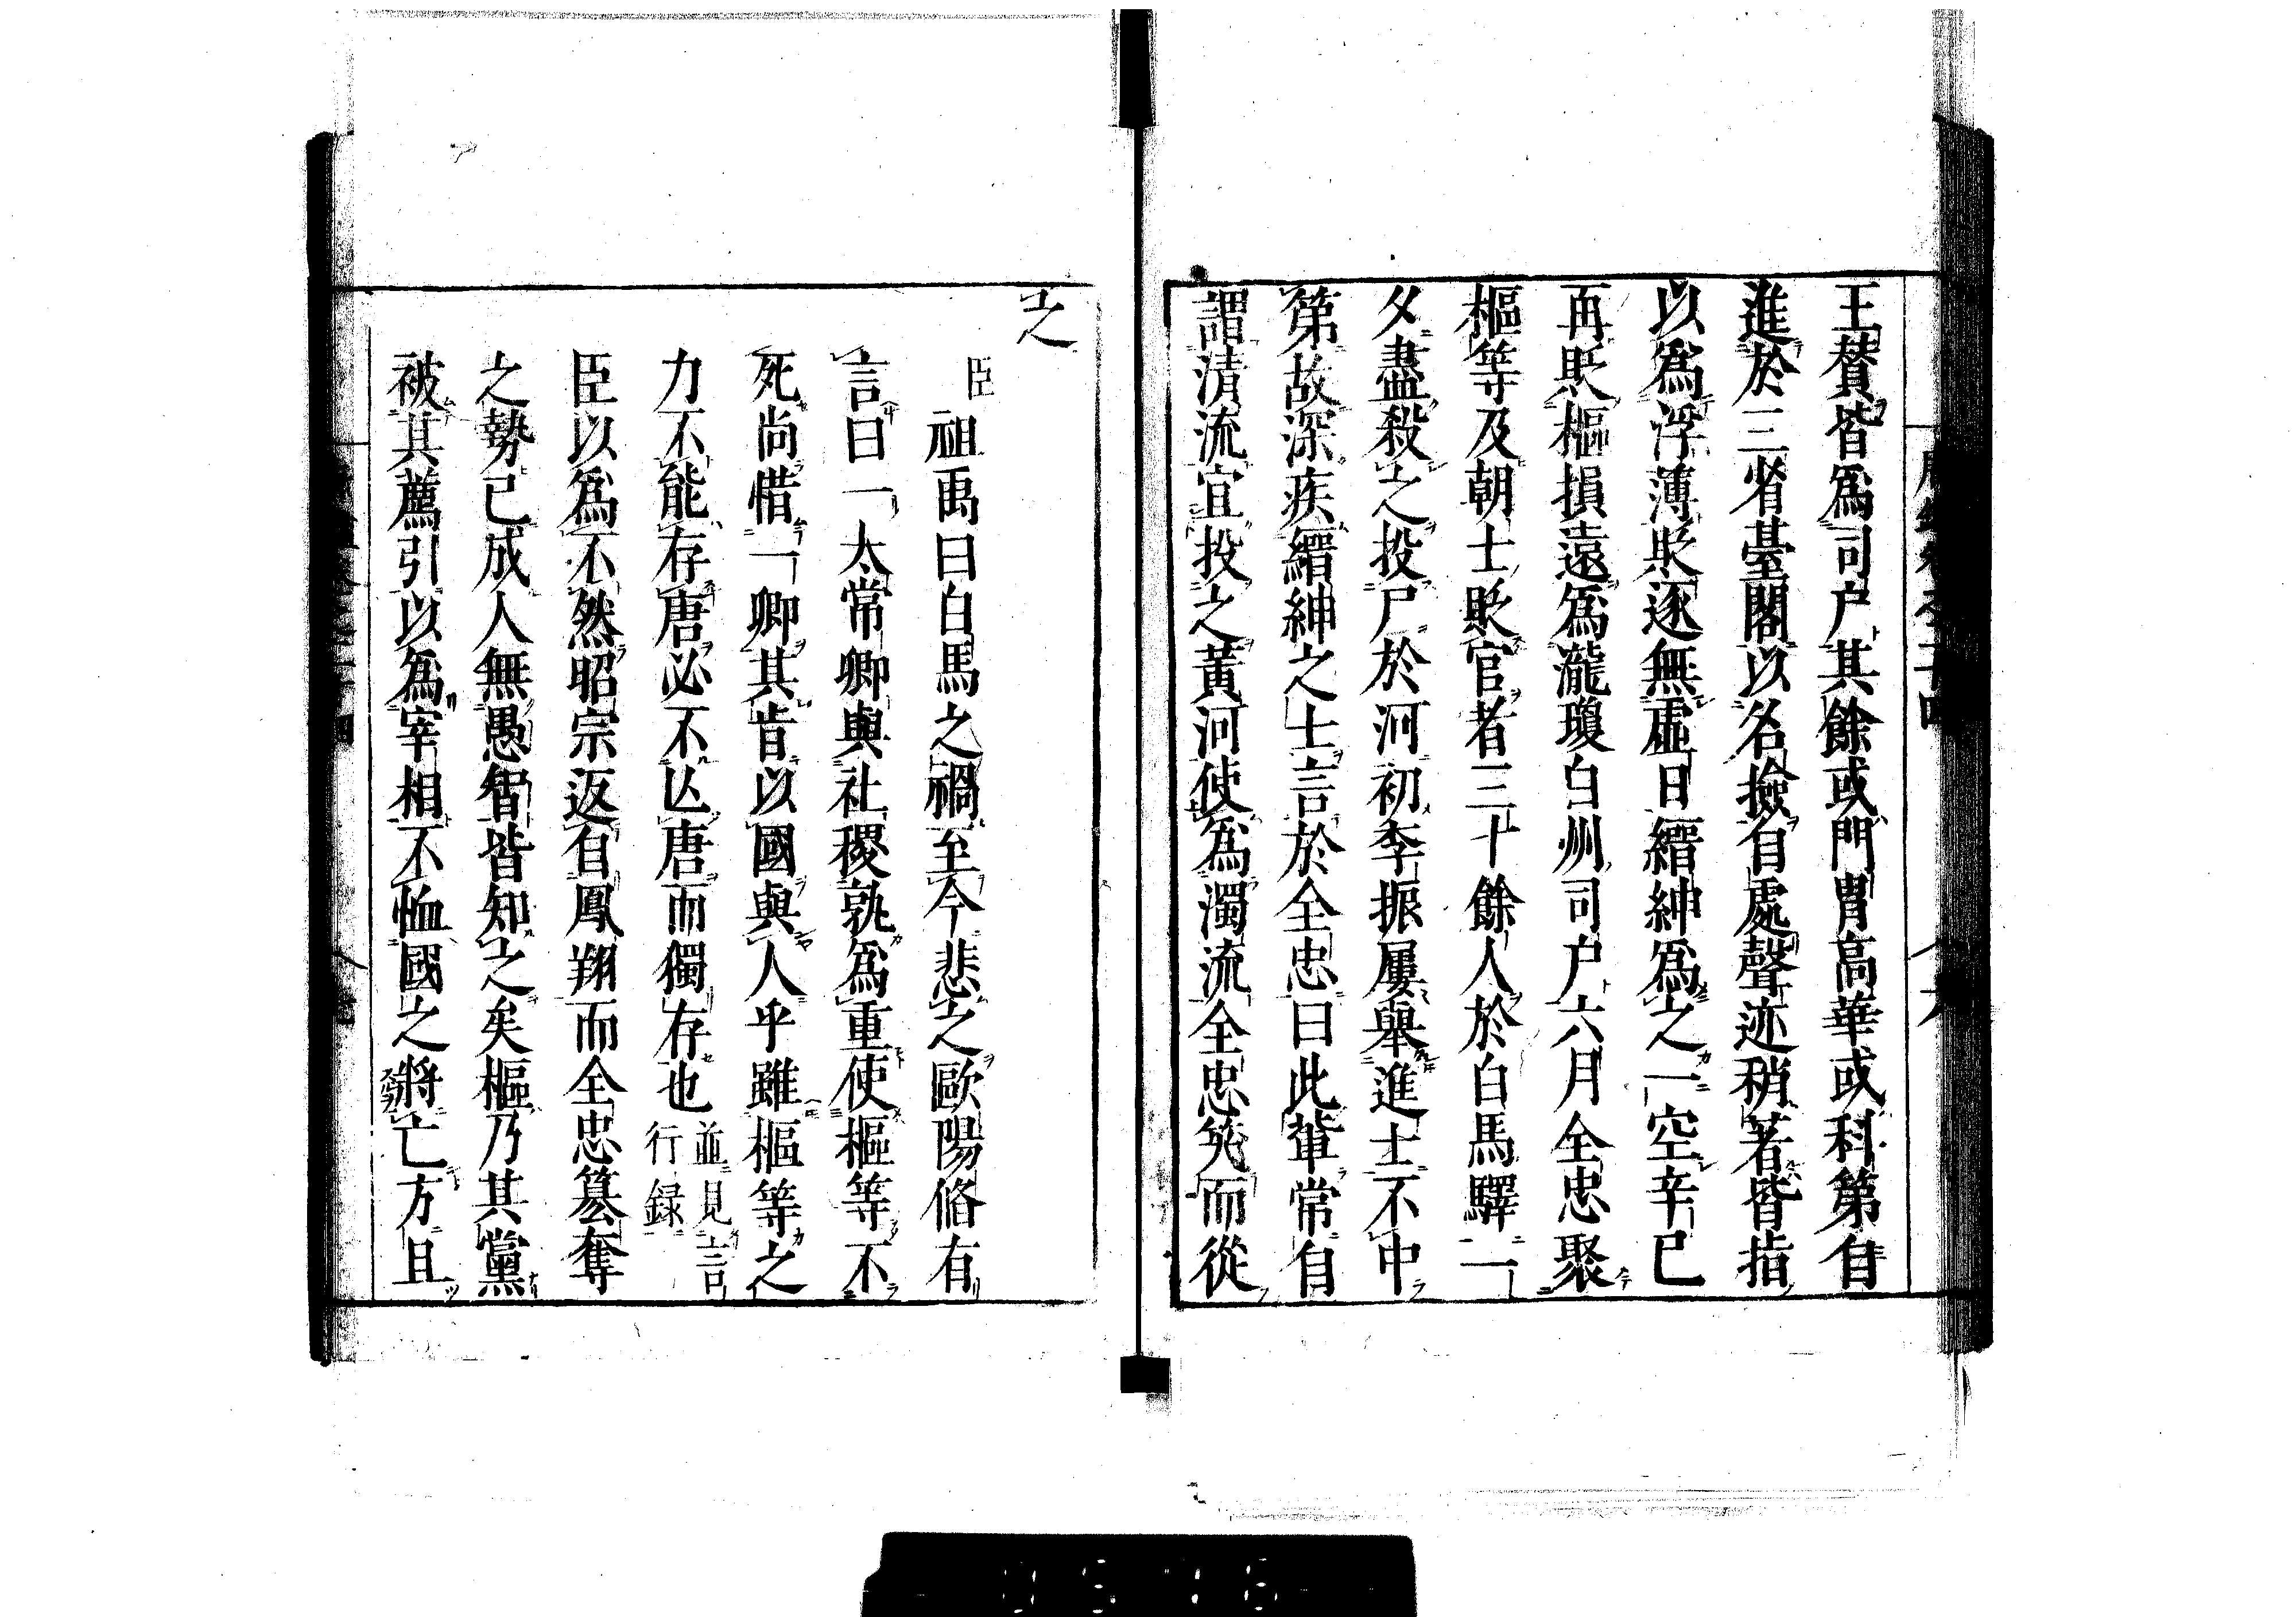 王賛皆爲司户其餘或門胄高華或科第自
進於三省臺閣以名撿自處聲迹稍著皆指
以爲浮薄貶逐無虛日縉紳爲之一空辛巳
再貶樞損遠爲瀧瓊白州司户六月全忠聚
樞等及朝士貶官者三十餘人於白馬驛一
夕盡殺之投尸於河初李振屢舉進士不中
第故深疾縉紳之士言於全忠曰此輩常自
謂清流宜投之黃河使爲濁流全忠笑而從
之
臣祖禹曰白馬之禍至今悲之歐陽脩有
言曰一太常卿與社稷孰爲重使樞等不
死尚惜一卿其肯以國與人乎雖樞等之
力不能存唐必不亾唐而獨存也並見言行録
臣以爲不然昭宗返自鳳翔而全忠簒奪
之勢已成人無愚智皆知之矣樞乃其黨
被其薦引以爲宰相不恤國之將亡方且